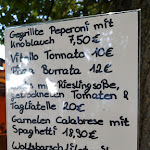 Gegrillte Peperoni mit
Knoblauch 7,50€
Vitello Tonnato 10€
Burrata 12€
mit Rieslingsoße,
getrockneten Tomaten &
Tagliatelle 20€
Garnelen Calabrese mit
Spaghetti 18,90€